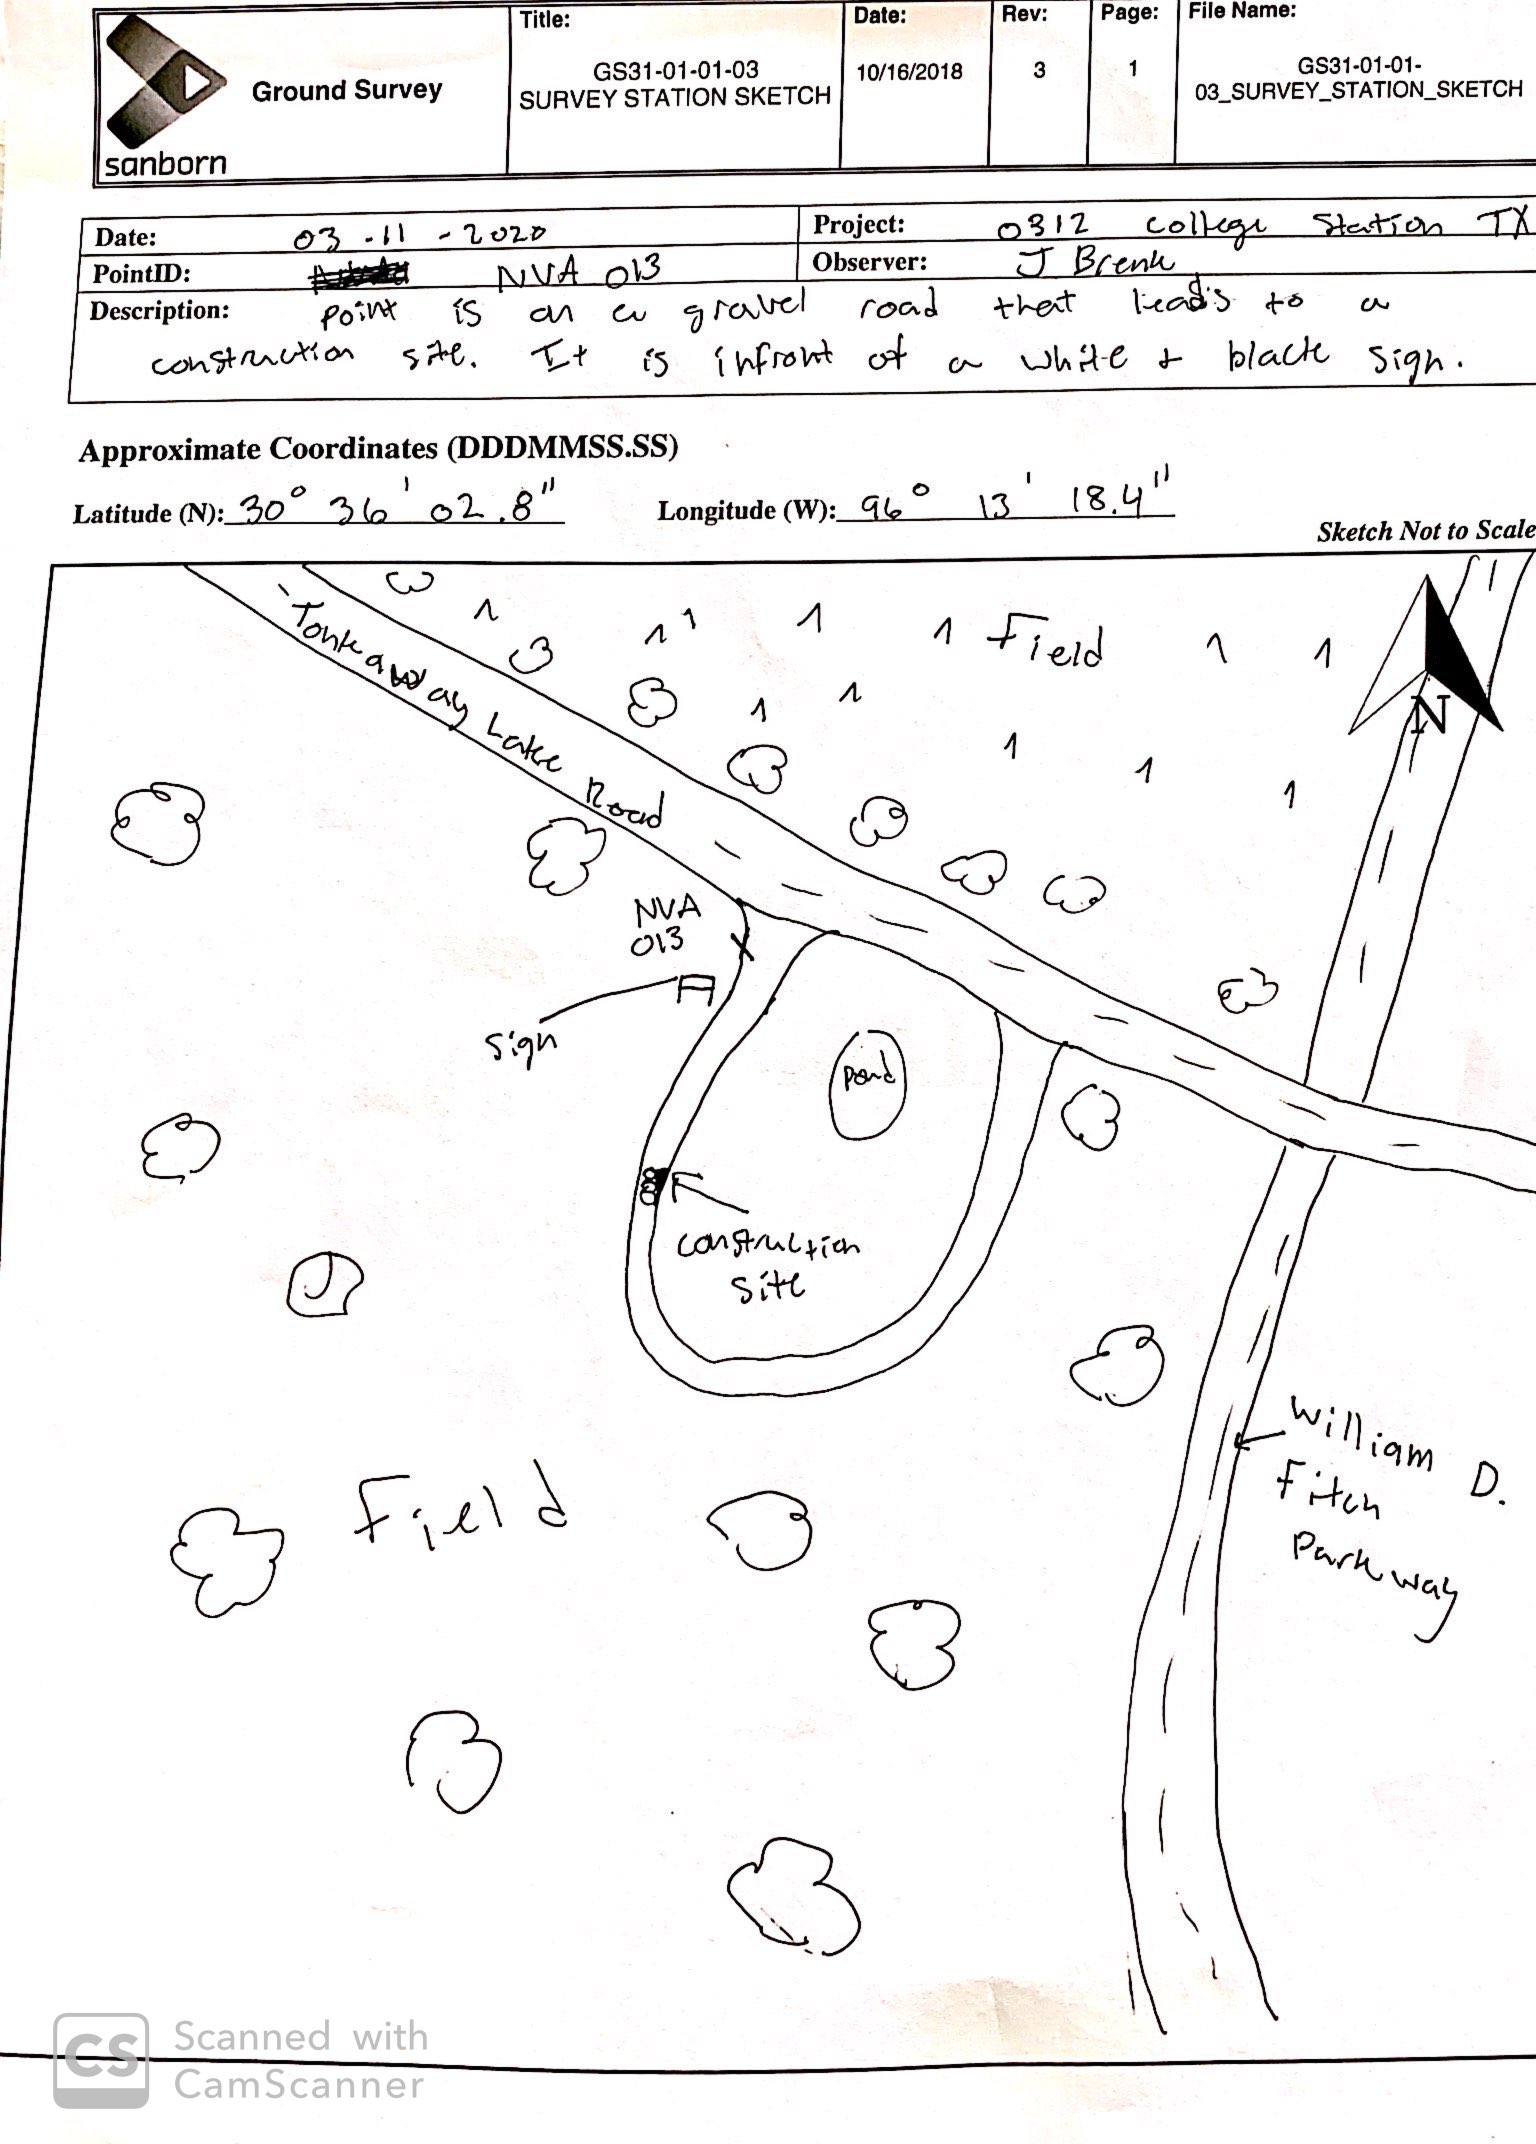 sanborn
Ground Survey
Title:
GS31-01-01-03
SURVEY STATION SKETCH
Date:
10/16/2018
Rev:
3
Page:
1
File Name:
GS31-01-01-
03_SURVEY_STATION_SKETCH
Date: 03-11-2020
Project: 0312 College Station TX
PointID: NVA 013
Observer: J Brenk
Description: point is on a gravel road that leads to a
construction site. It is infront of a white + black sign.
Approximate Coordinates (DDDMMSS.SS)
Latitude (N): 30° 36' 02.8"
Longitude (W): 96° 13' 18.4"
Sketch Not to Scale
N
Field
Tonkaway Lake Road
NVA
013
sign
pond
construction
site
William D.
Fitch
Parkway
Field
CS
Scanned with
CamScanner